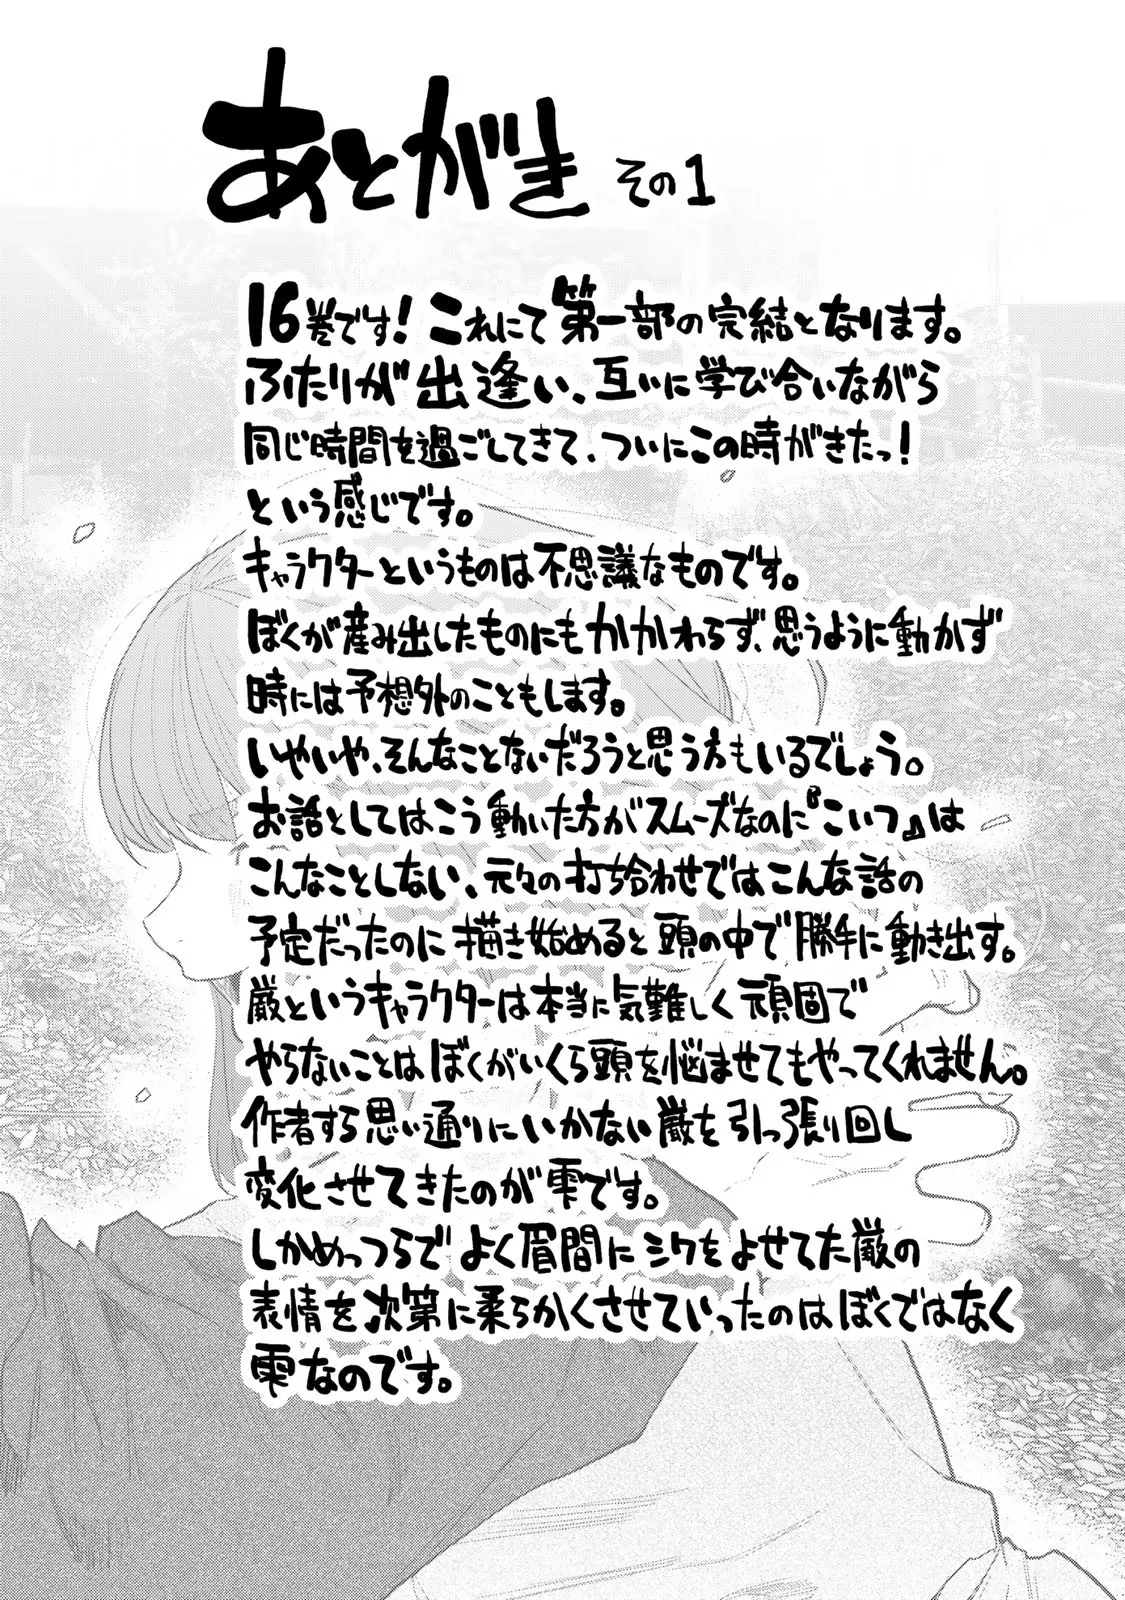 あとがき その1
16巻です！これにて第一部の完結となります。
ふたりが出逢い、互いに学び合いながら
同じ時間を過ごしてきて、ついにこの時がきたっ！
という感じです。
キャラクターというものは不思議なものです。
ぼくが産み出したものにもかかわらず、思うように動かず
時には予想外のこともします。
いやいや、そんなことないだろうと思う方もいるでしょう。
お話としてはこう動いた方がスムーズなのに『こいつ』は
こんなことしない、元々の打ち合わせではこんな話の
予定だったのに描き始めると頭の中で勝手に動き出す。
巌というキャラクターは本当に気難しく頑固で
やらないことはぼくがいくら頭を悩ませてもやってくれません。
作者すら思い通りにいかない巌を引っ張り回し
変化させてきたのが雫です。
しかめっつらでよく眉間にシワをよせてた巌の
表情を次第に柔らかくさせていったのはぼくではなく
雫なのです。